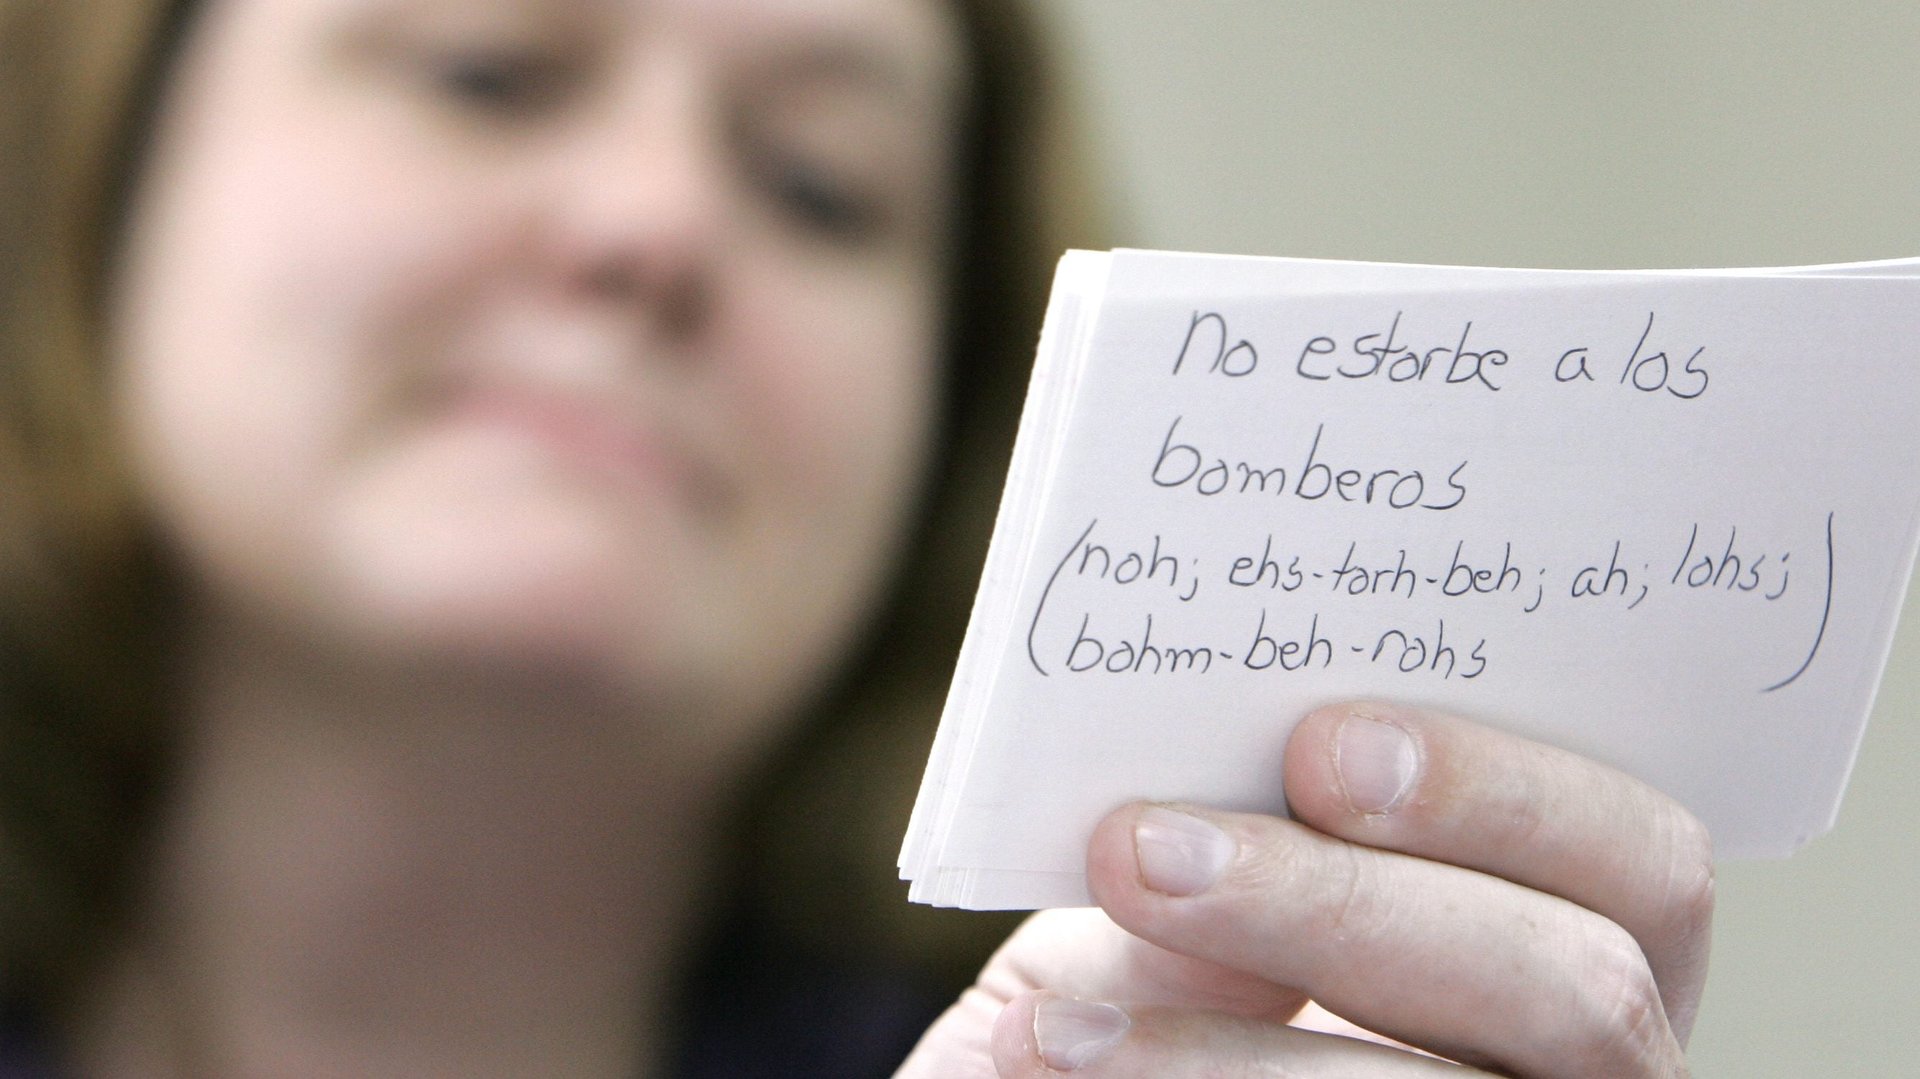 No estorbe a los
bomberos
(noh; ehs-torh-beh; ah; lohs;
bohm-beh-rohs)